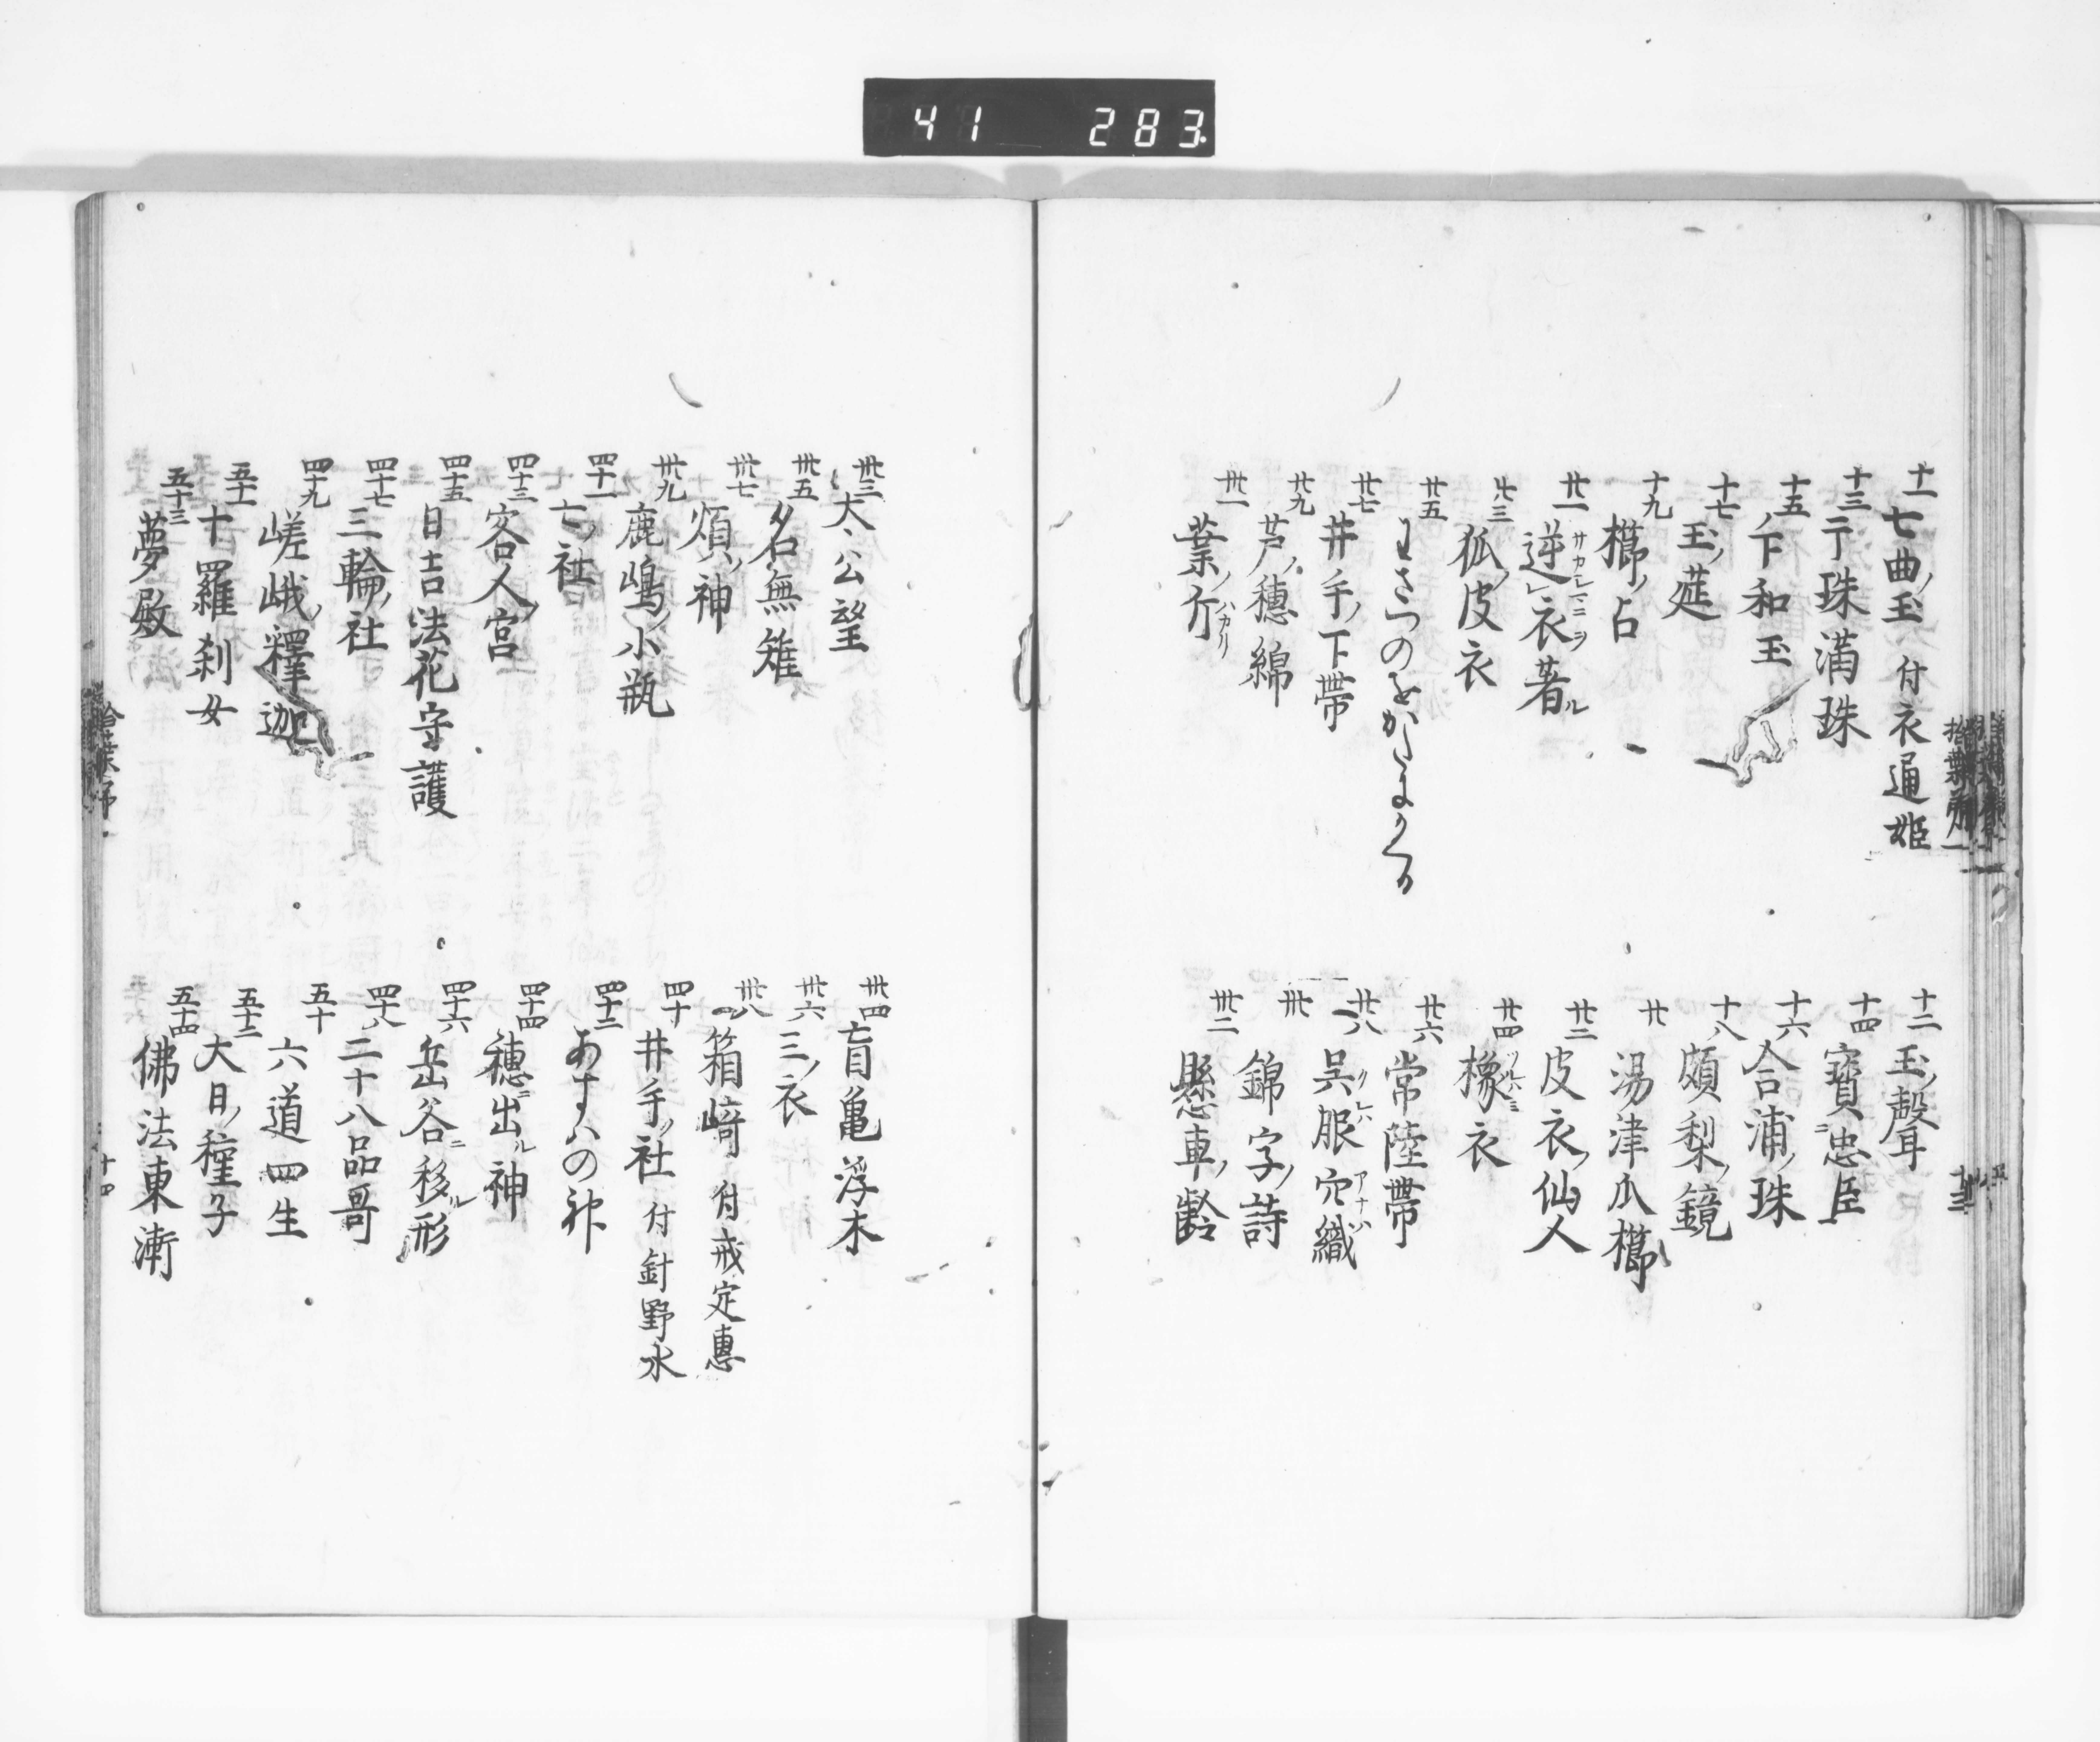 41 283.
十一 七曲ノ玉 付衣通姫
十二 玉ノ聲
十三 干珠満珠
十四 寳ニ忠臣
十五 卞和玉
十六 合浦ノ珠
十七 玉ノ莚
十八 頗梨ノ鏡
十九 櫛ノ占
廿 湯津爪櫛
廿一 逆衣著ル
廿二 皮衣ノ仙人
廿三 狐ノ皮衣
廿四 橡衣
廿五
廿六 常陸帶
廿七 井手ノ下帶
廿八 呉服穴織
廿九 芦ノ穂綿
卅 錦字ノ詩
卅一 葉ノ斤
卅二 懸車ノ齢
卅三 太公望
卅四 盲亀浮木
卅五 名無雉
卅六 三ノ衣
卅七 煩ノ神
卅八 箱﨑 付戒定惠
卅九 鹿嶋ノ小瓶
四十 井手ノ社 付針野水
四十一 七ノ社
四十二 あすはの神
四十三 客人ノ宮
四十四 穂ニ出ル神
四十五 日吉法花守護
四十六 岳谷ニ移ル形
四十七 三輪ノ社
四十八 二十八品哥
四十九 嵯峨ノ釋迦
五十 六道四生
五十一 十羅刹女
五十二 大日ノ種子
五十三 夢殿
五十四 佛法東漸